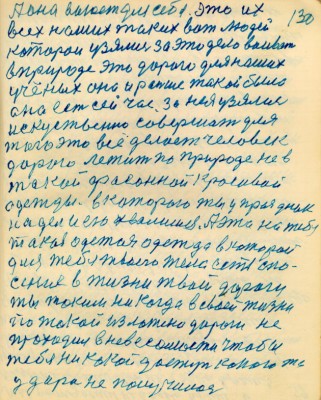 А она вьюет для себя. Это их 130
всех наших таких вот людей
которои узялись за это дело
в природе это дорого для наших
учёных она и ранше такой была
она есть сей час. за нея узялись
искуствено совершать для
того это всё делает человек
дорого летит по природе не в
такой фасонной красивой
одежды. в которого ты у праздник
надел и ею хвалился. А эта на тебе
такая одетая одежда в которой
для тебя твоего тела есть спа-
сение в жизни твой дороги
ты таким никогда в своей жизни
по такой изложено дороги не
проходил в невесомости чтобы
тебя никакой доступ какого то
удара не получилось